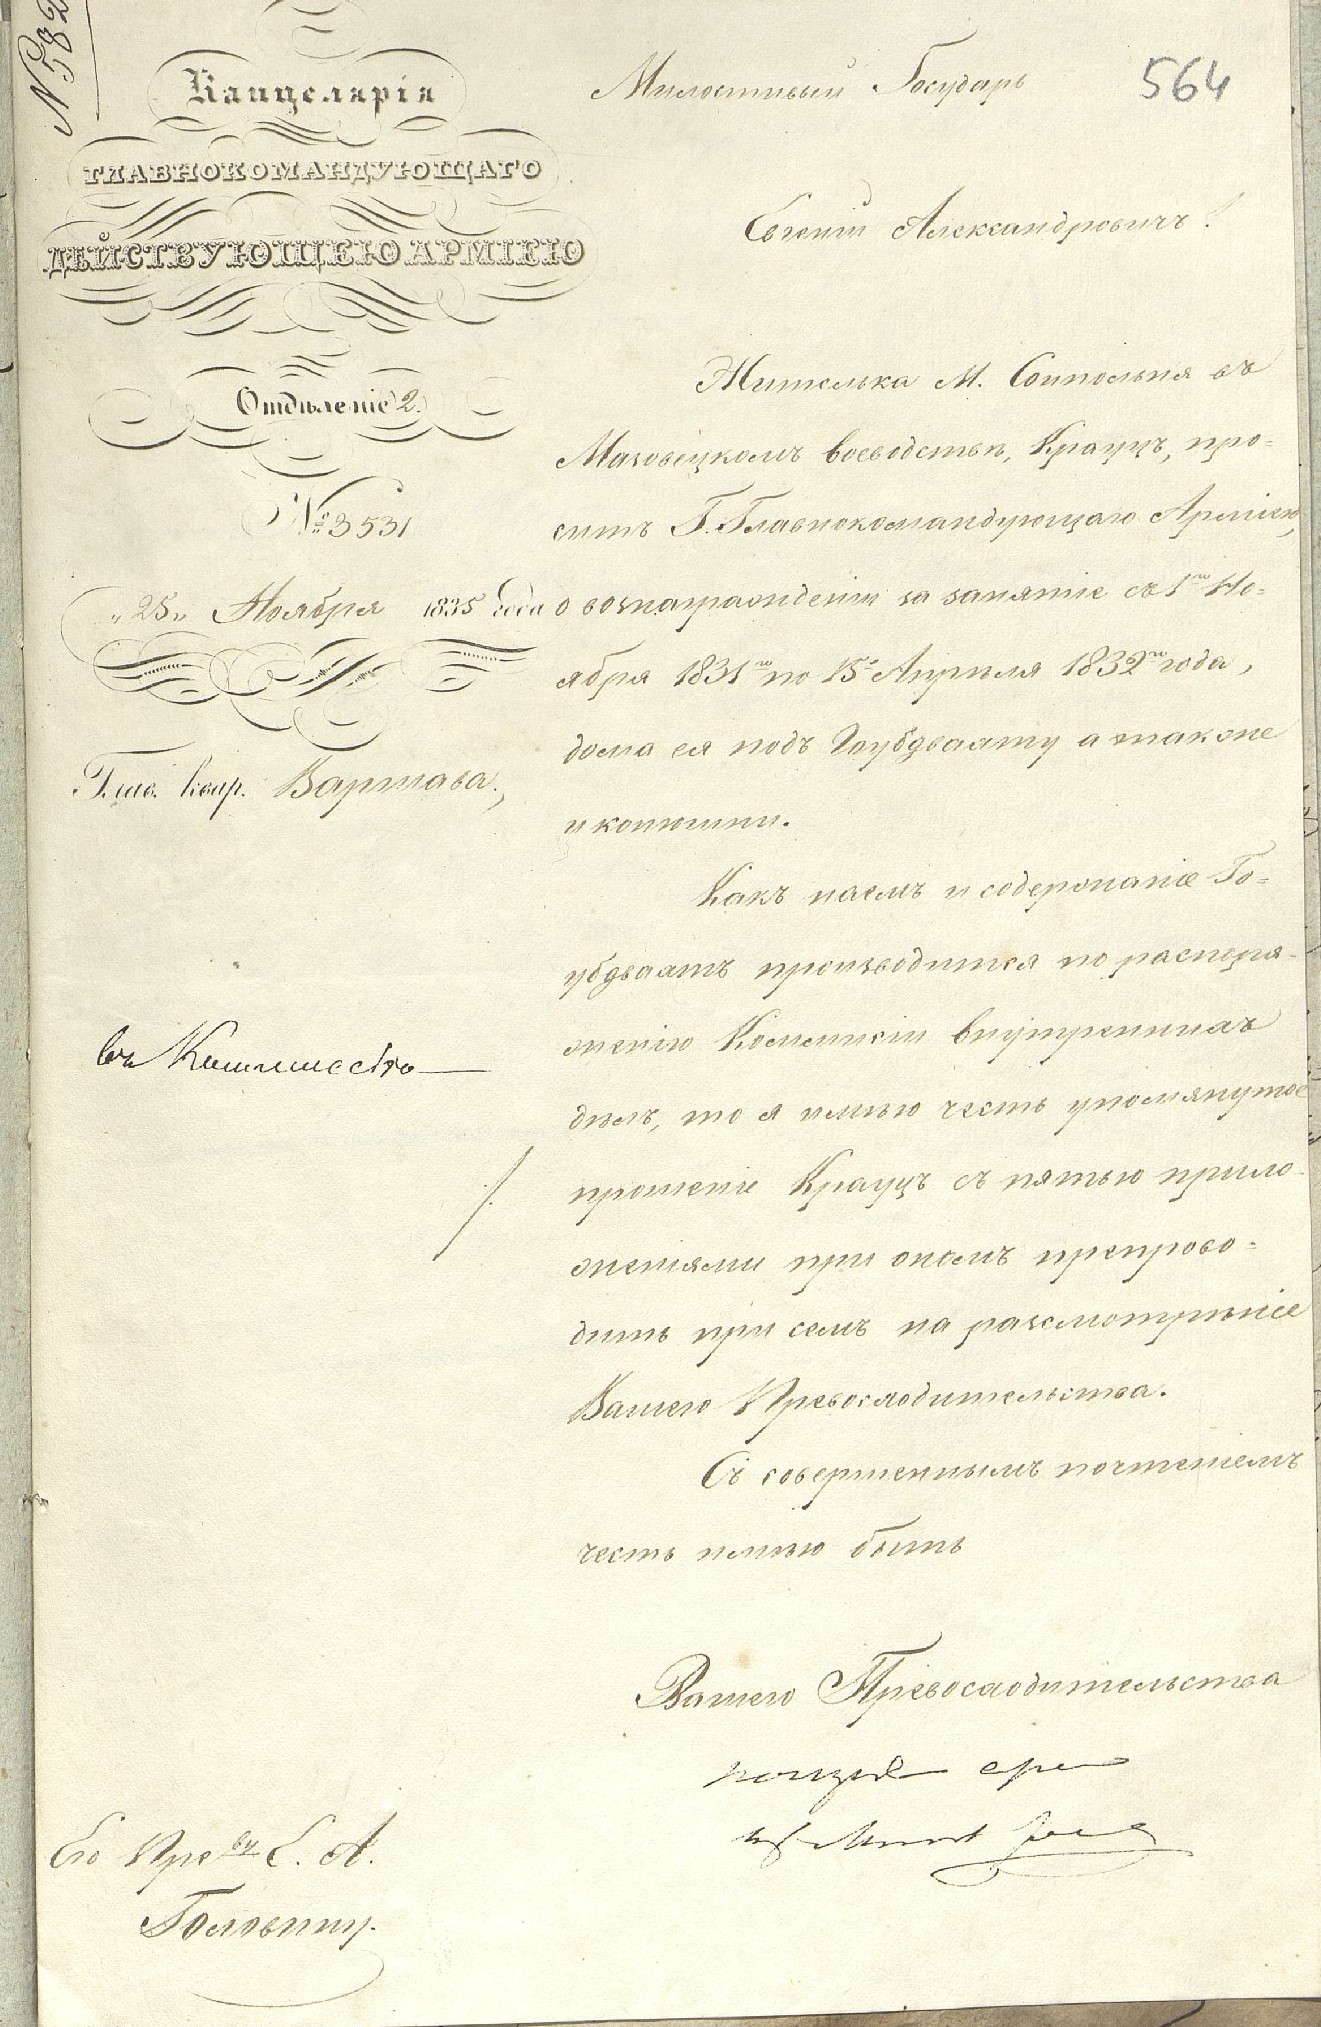 Канцелярія
ГЛАВНОКОМАНДУЮЩАГО
ДѢЙСТВУЮЩЕЮ АРМІЕЮ
Отдѣленіе 2.
№ 3531
„25„ Ноября 1835 года
Глав. квар. Варшава.,
въ Коммиссію
564
Милостивый Государь
Евгеній Александровичъ!
Жителька М. Сомпольня въ
Мазовецкомъ воеводствѣ, Крауцъ, про=
ситъ Г. Главнокомандующаго Арміею,
о вознагражденіи за занятіе съ 1го Но=
ября 1831го по 15е Апрѣля 1832го года,
дома ея подъ Гоубдваяту а также
и конюшни.
Какъ наемъ и содержаніе Го=
убдваятъ производится по распоря-
женію Коммисіи внутреннихъ
дѣлъ, то я имѣю честь упомянутое
прошеніе Крауцъ съ пятью прило-
женіями при ономъ препрово=
дить при семъ на разсмотрѣніе
Вашего Превосходительства.
Съ совершеннымъ почтеніемъ
честь имѣю быть
Вашего Превосходительства
Его Превву Е. А.
Головину.